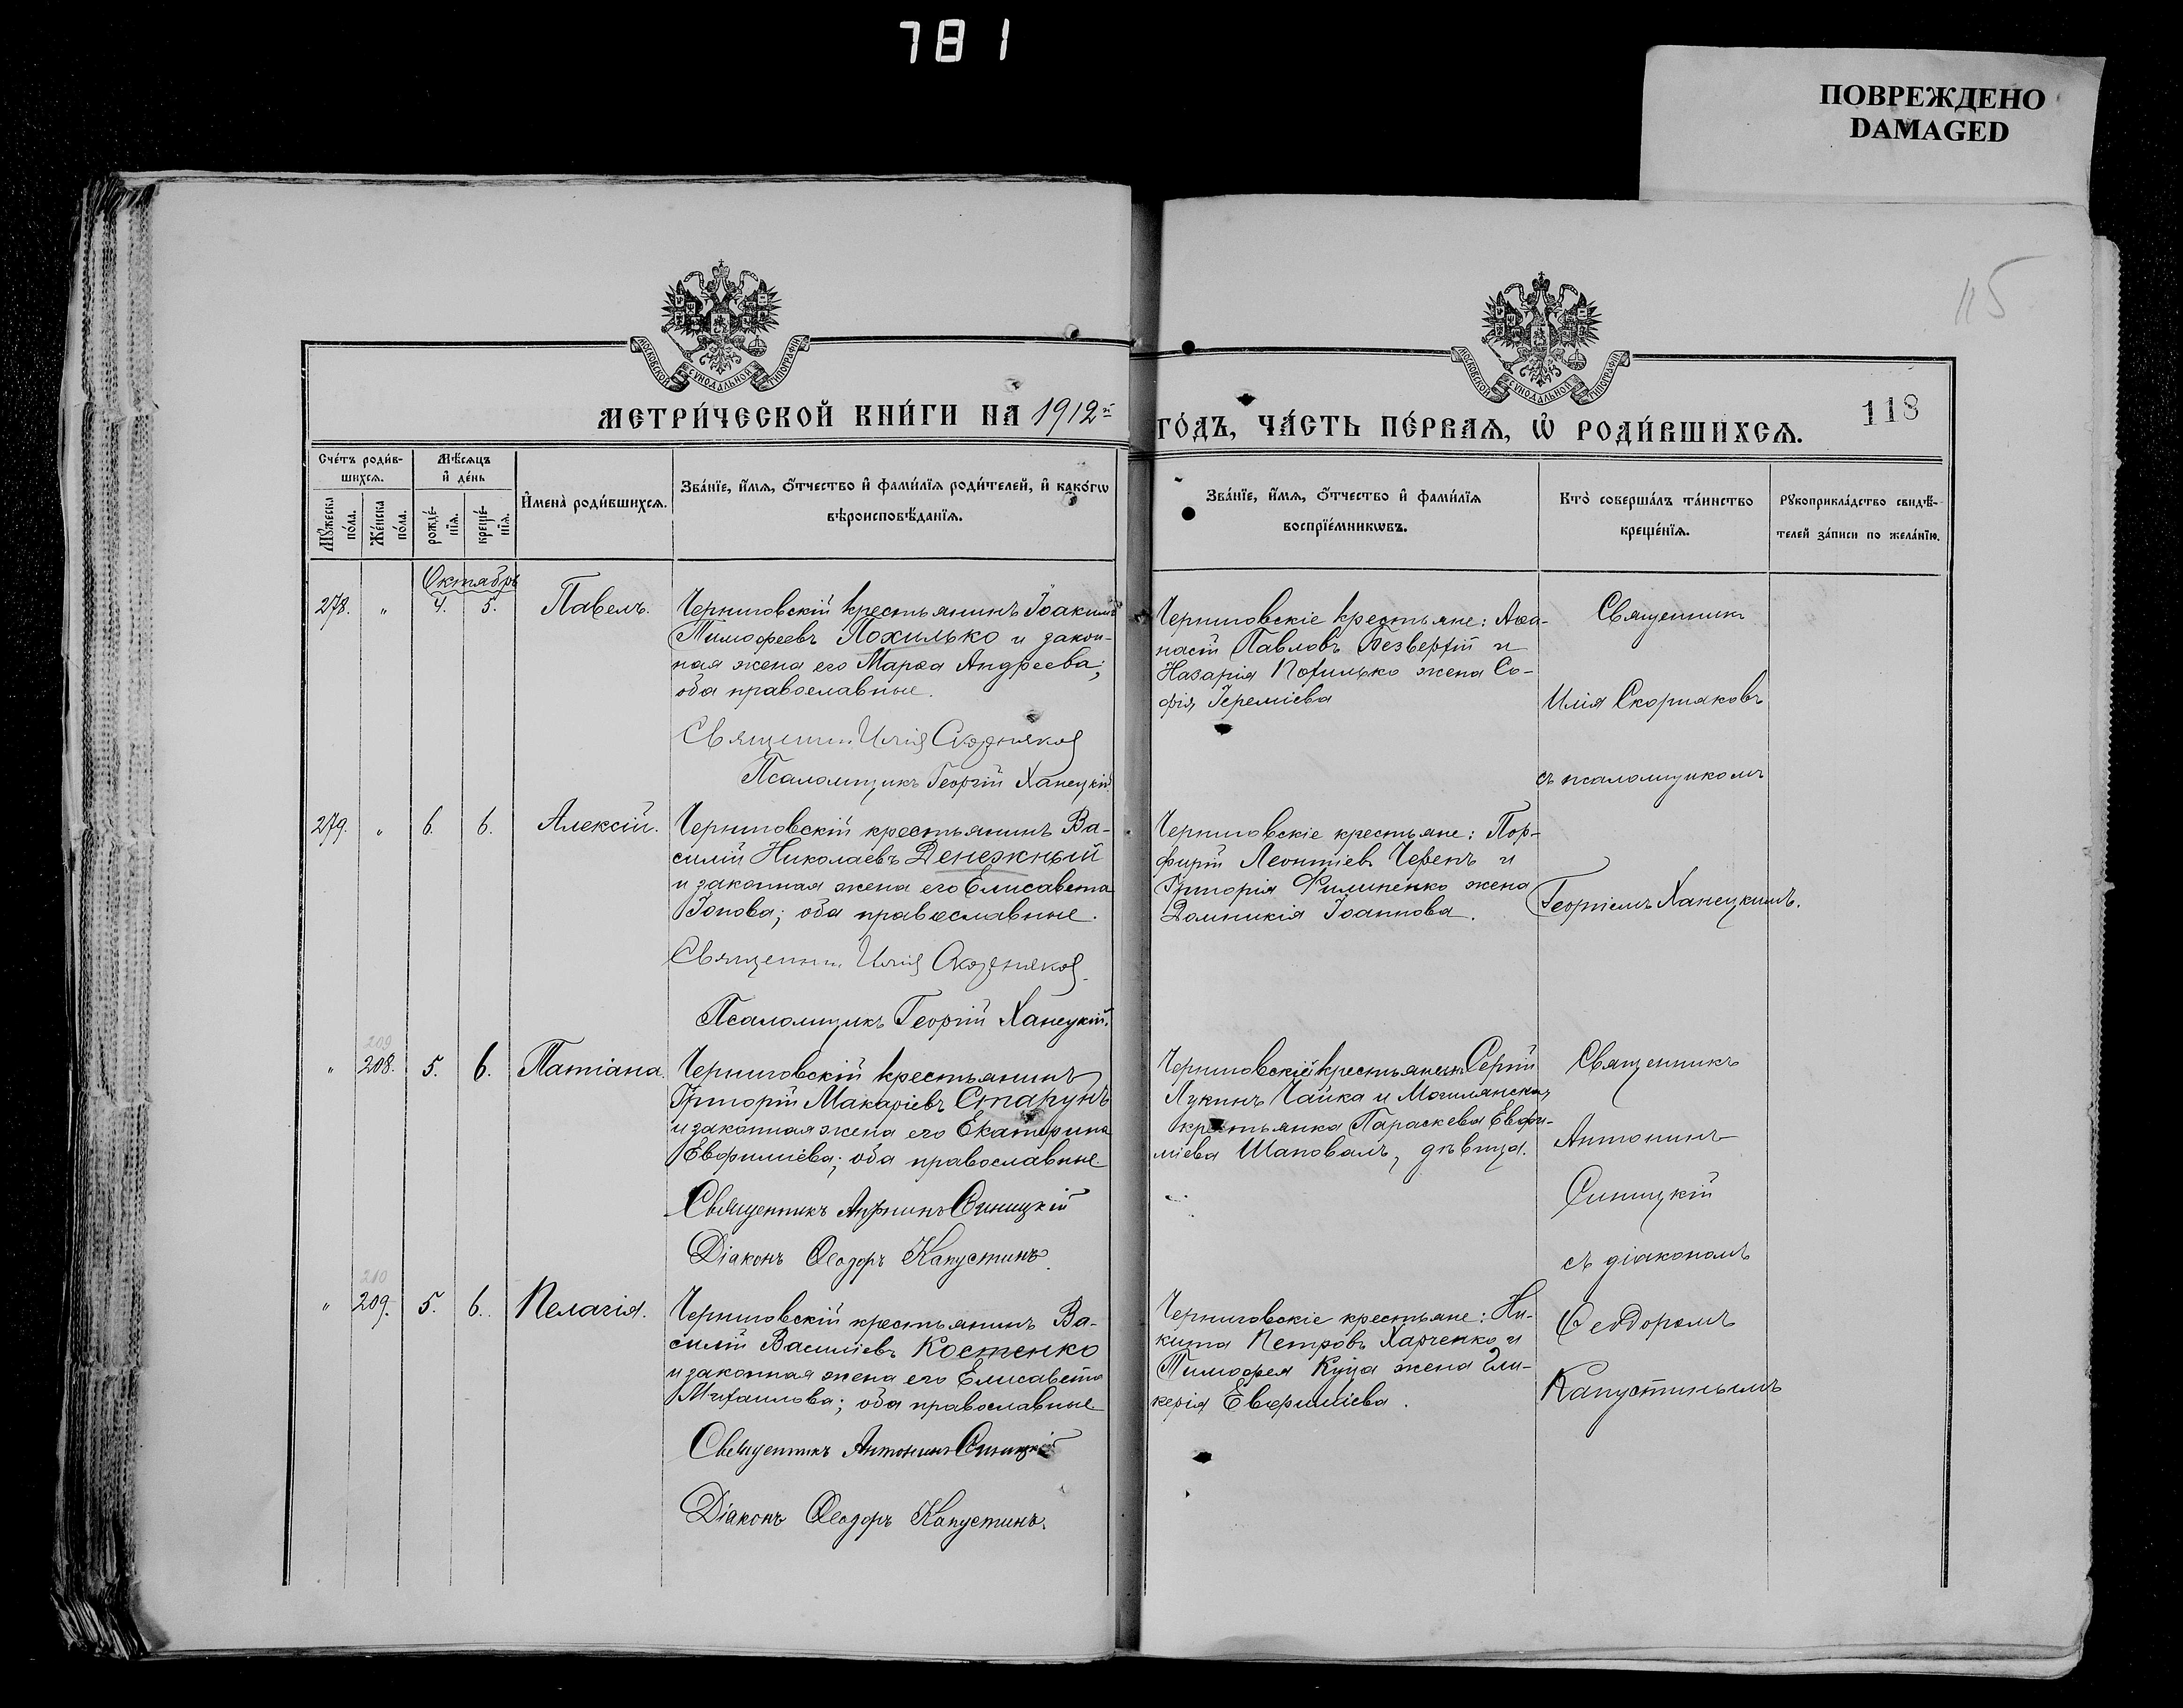 781
ПОВРЕЖДЕНО
DAMAGED
115
МОСКОВСКОЙ СѴНОДАЛЬНОЙ ТИПОГРАФІИ
МОСКОВСКОЙ СѴНОДАЛЬНОЙ ТИПОГРАФІИ
МЕТРИ́ЧЕСКОЙ КНИ́ГИ НА 1912й
ГО́ДЪ, ЧА́СТЬ ПЕ́РВАѦ, Ѡ҆ РОДИ́ВШИХСѦ.
118
Сче́тъ роди́в-
шихсѧ.
Мѣ́сѧцъ
и҆ де́нь
Мꙋ́жеска
по́ла.
Же́нска
по́ла.
рожде́-
нїѧ.
креще́-
нїѧ.
И҆мена̀ роди́вшихсѧ.
Зва́нїе, и҆́мѧ, ѻ҆́тчество и҆ фами́лїѧ роди́телей, и҆ како́гѡ
вѣроисповѣ́данїѧ.
Зва́нїе, и҆́мѧ, ѻ҆́тчество и҆ фами́лїѧ
воспрїе́мникѡвъ.
Кто̀ соверша́лъ та́инство
креще́нїѧ.
Рꙋкоприкла́дство свидѣ́-
телей за́писи по жела́нїю.
Октябрь
278. " 4. 5. Павелъ.
Черниговскій крестьянинъ Іоакимъ
Тимофеевъ Похилько и закон-
ная жена его Марѳа Андреева;
оба православные.
Священник Илія Скорняков
Псаломщикъ Георгій Ханецкій.
Черниговскіе крестьяне: Аѳа-
насій Павловъ Безверхій и
Назарія Похилько жена Со-
фія Іереміева
Священникъ
Илія Скорняковъ
съ псаломщикомъ
279. " 6. 6. Алексій.
Черниговскій крестьянинъ Ва-
силій Николаевъ Денежный
и законная жена его Елисавета
Іонова; оба православные.
Священник Илія Скорняков
Псаломщикъ Георгій Ханецкій.
Черниговскіе крестьяне: Пор-
фирій Леонтіевъ Черенъ и
Григорія Филипенко жена
Домникія Іоаннова.
Георгіемъ Ханецкимъ.
209
" 208. 5. 6. Татіана.
Черниговскій крестьянинъ
Григорій Макаріевъ Старунъ
и законная жена его Екатерина
Евфиміева; оба православные.
Священникъ Антонинъ Синицкій
Діаконъ Ѳеодоръ Капустинъ.
Черниговскій крестьянинъ Сергій
Лукинъ Чайка и Могилянская
крестьянка Параскева Евфи-
міева Шаповалъ, дѣвица.
Священникъ
Антонинъ
Синицкій
съ діакономъ
210
" 209. 5. 6. Пелагія.
Черниговскій крестьянинъ Ва-
силій Василіевъ Костенко
и законная жена его Елисавета
Михаилова; оба православные
Священникъ Антонинъ Синицкій
Діаконъ Ѳеодоръ Капустинъ.
Черниговскіе крестьяне: Ни-
кита Петровъ Харченко и
Тимофея Куца жена Гли-
керія Евфиміева.
Ѳеодоромъ
Капустинымъ